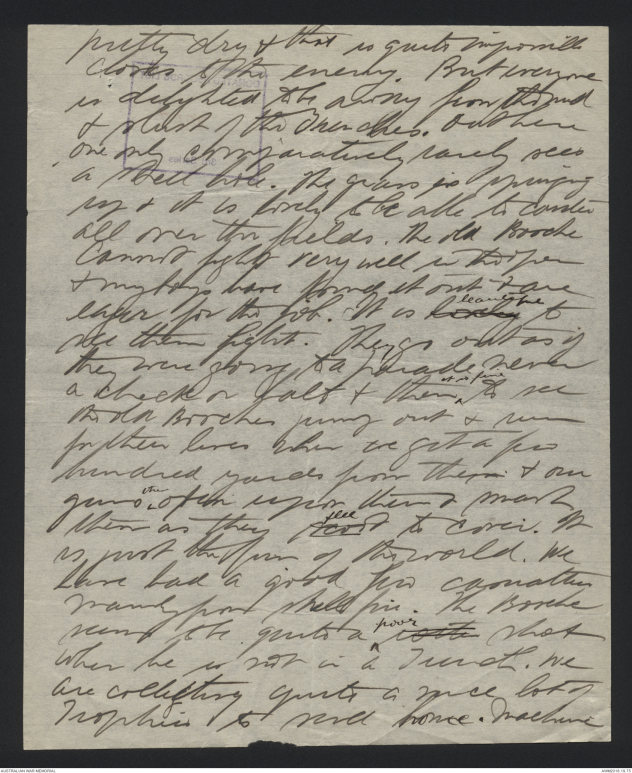 pretty dry & that is quite impossible
close to the enemy. But everyone
is delighted to be away from the mud
& slush of the Trenches. Out here
one only comparatively rarely sees
a shell hole. The grass is springing
up & it is lovely to be able to canter
all over the fields. The old Booche
Cannot fight very well in the open
& my boys have found it out & are
eager for the job. It is to
see them fight. They go out as if
they were going to a parade, never
a check or halt & then it is fine to see
the old Booches jump out & run
for their lives when we get a few
hundred yards from them & our
guns then open upon them & mash
them as they flee to cover. It
is just the fun of the world. We
have had a good few casualties
mainly from shell fire. The Booche
seems to be quite a poor shot
when he is not in a Trench. We
are collecting quite a nice lot of
Trophies to send home. Machine
AUSTRALIAN WAR MEMORIAL